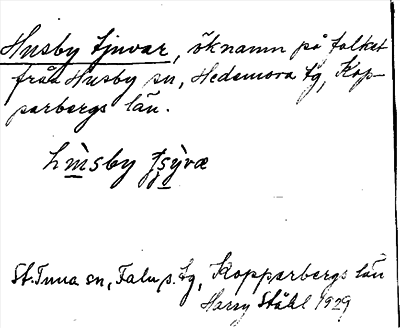 Husby tjuvar, öknamn på folket
från Husby sn, Hedemora tg, Kop-
parbergs län.
St. Tuna sn, Falu s. tg, Kopparbergs län
Harry Ståhl 1929